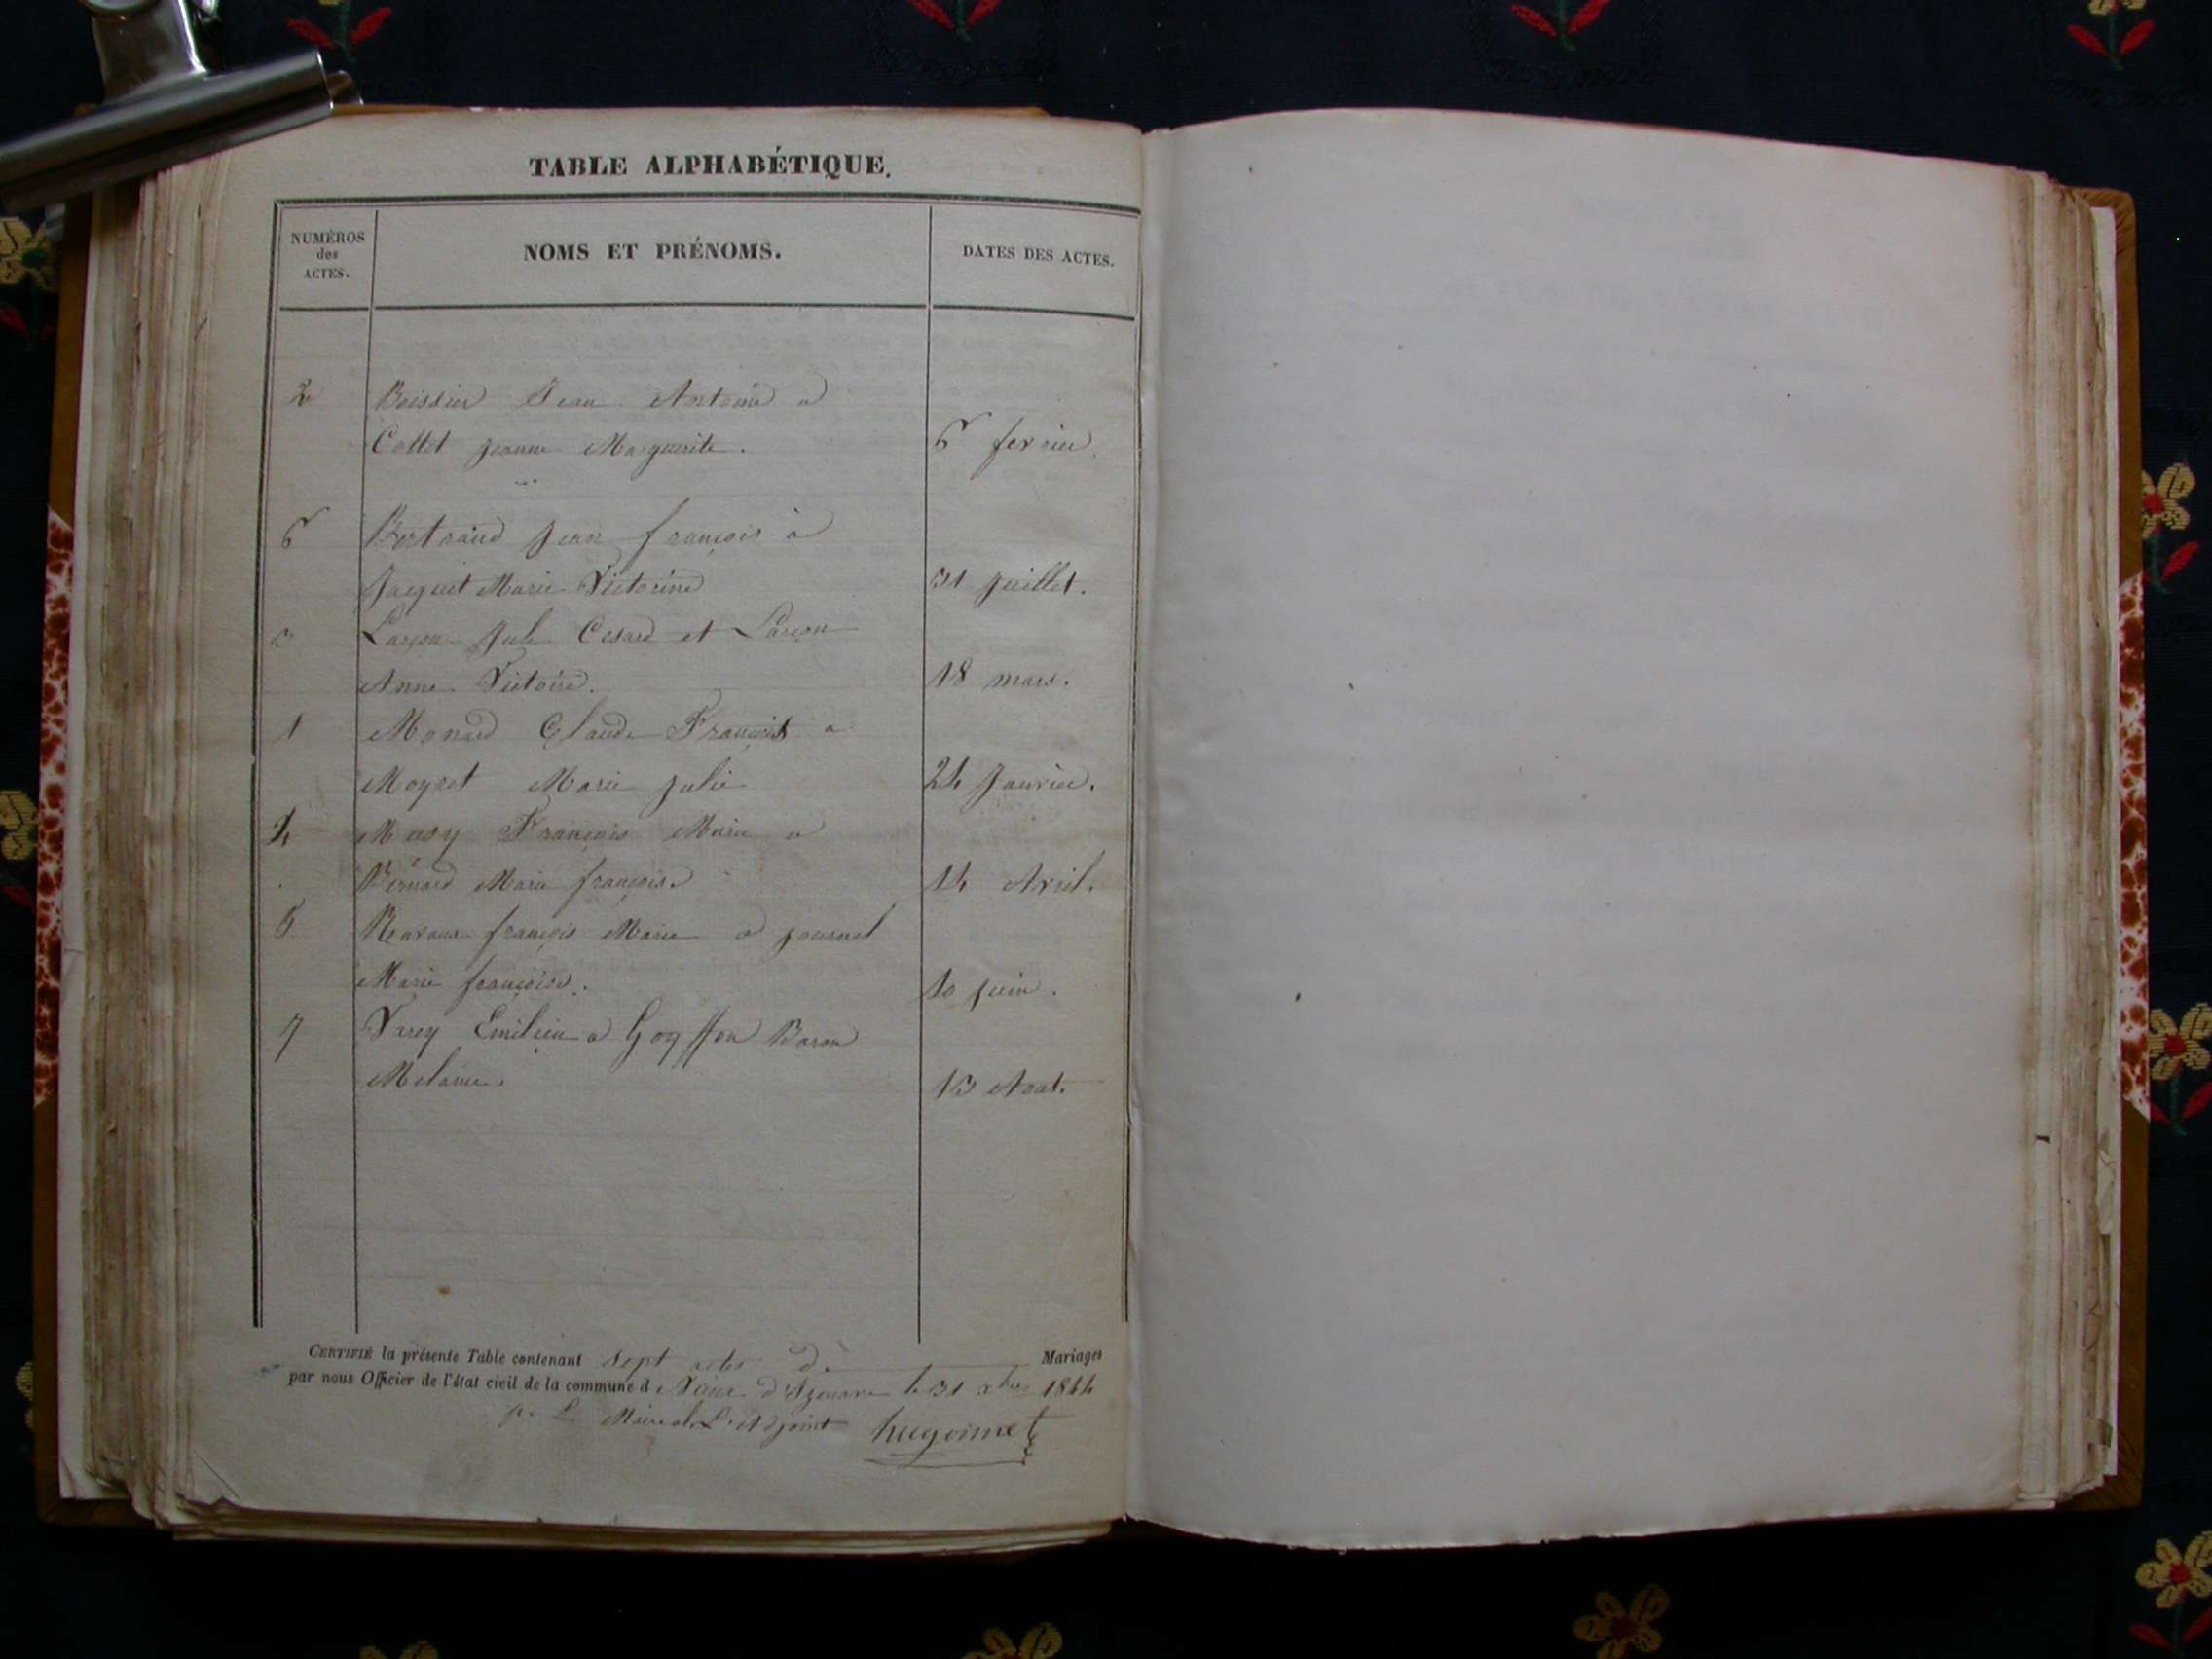 TABLE ALPHABÉTIQUE.
NUMÉROS
des
ACTES.
NOMS ET PRÉNOMS.
DATES DES ACTES.
2 Boissier Jean Antoine a
Collet Jeanne Marguerite. 6 fevrier.
6 Bertrand Jean françois à
Jacquet Marie Victorine 31 Juillet.
3 Larçon Jule Cesard et Larçon
Anne Victoire. 18 mars.
1 Monard Claude François a
Moyret Marie Julie 24 Janvier.
4 François Marie a
Bérnard Marie françoise 14 Avril.
5 Ravaux françois Marie a journel
Marie françoise. 10 juin.
7 Varey Emilien a Goyffon Baron
Melanie. 13 Aout.
CERTIFIÉ la présente Table contenant sept actes de Mariages
par nous Officier de l'état civil de la commune d le 31 xbre 1844
Maire abs. L'Adjoint hugonnet